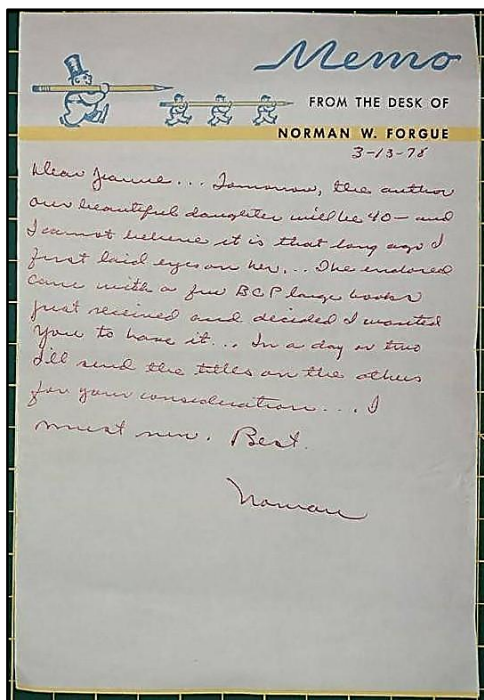 Memo
FROM THE DESK OF
NORMAN W. FORGUE
3-13-78
Dear Jeanne... Tomorrow, the author
our beautiful daughter will be 40 — and
I cannot believe it is that long ago I
first laid eyes on her... The enclosed
came with a few BCP large books
just received and decided I wanted
you to have it... In a day or two
I'll send the titles on the others
for your consideration... I
must run. Best.
Norman